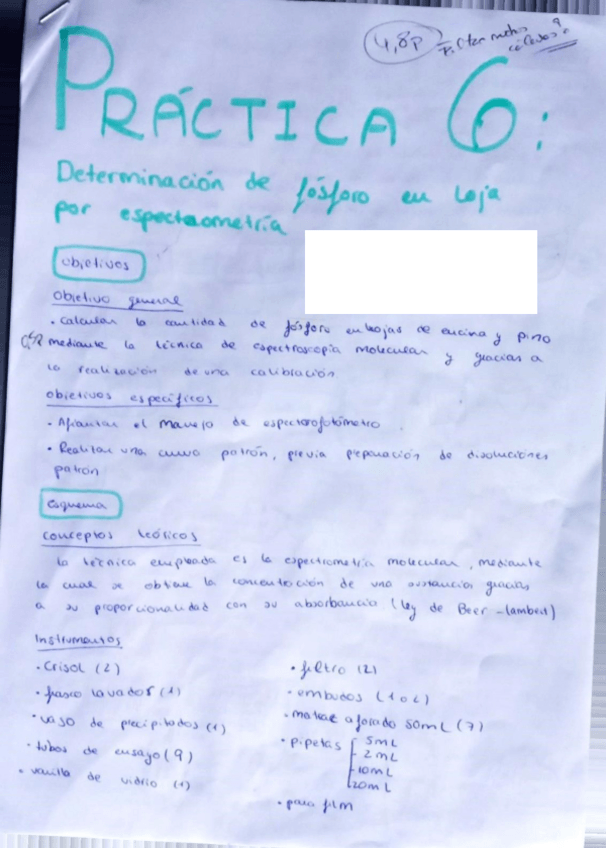 4,8p
PRÁCTICA 6:
Determinación de fósforo en hoja
por espectrometría
objetivos
objetivo general
• Calcular la cantidad de fósforo en hojas de encina y pino
mediante la técnica de espectroscopia molecular y gracias a
la realización de una calibración
objetivos específicos
• Afianzar el manejo de espectrofotómetro
• Realizar una curva patrón, previa preparación de disoluciones
patrón
esquema
conceptos teóricos
la técnica empleada es la espectrometría molecular, mediante
la cual se obtiene la concentración de una sustancia gracias
a su proporcionalidad con su absorbancia (ley de Beer-lambert)
Instrumentos
• Crisol (2)
• frasco lavador (1)
• vaso de precipitados (1)
• tubos de ensayo (9)
• varilla de vidrio (1)
• filtro (2)
• embudos (1 o 2)
• matraz aforado 50mL (7)
• pipetas 5mL
2mL
10mL
20mL
• para film